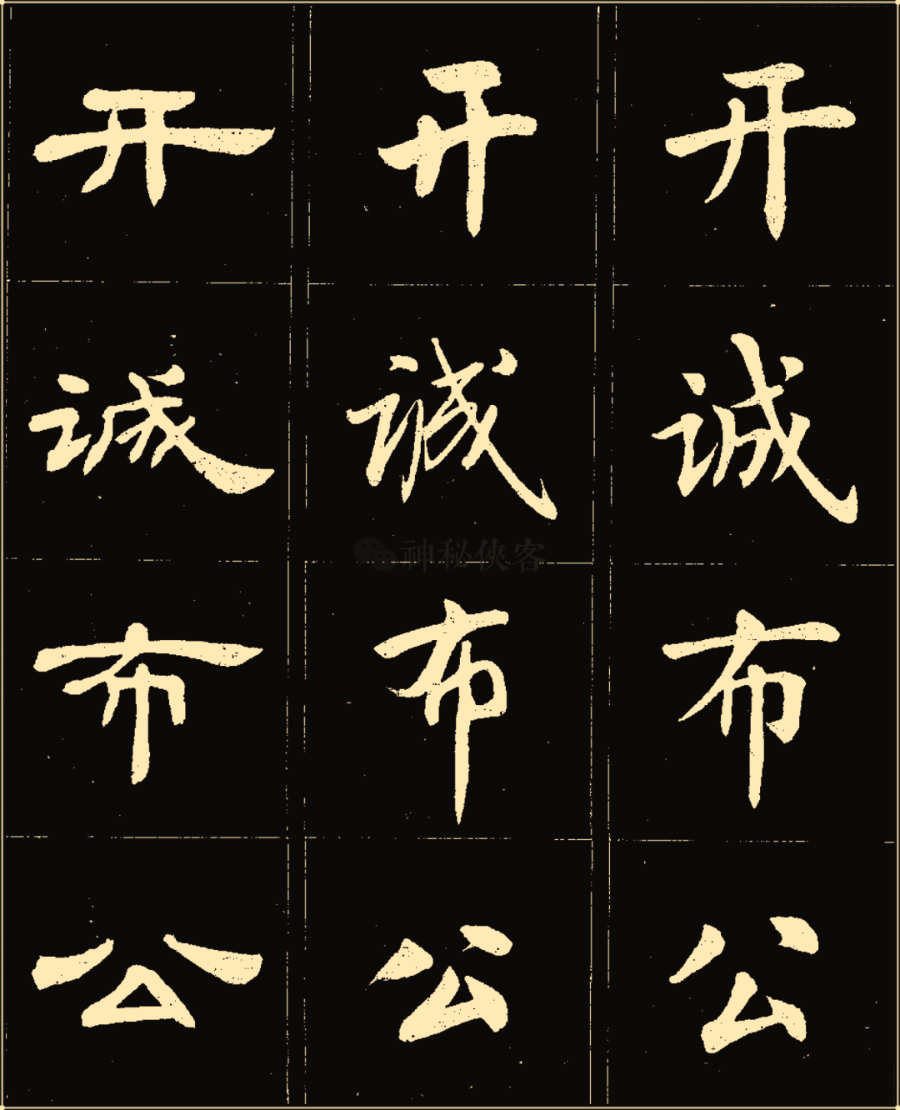 开 开 开
诚 诚 诚
布 布 布
神秘侠客
公 公 公